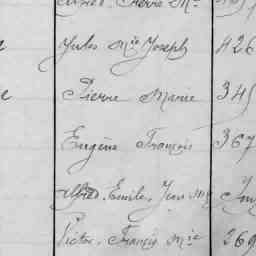 Alfred Pierre Mie
Jules Mie Joseph 426
Pierre Marie 345
Eugène François 367
Alfred Emile Jean Mie
Victor François Mie 369